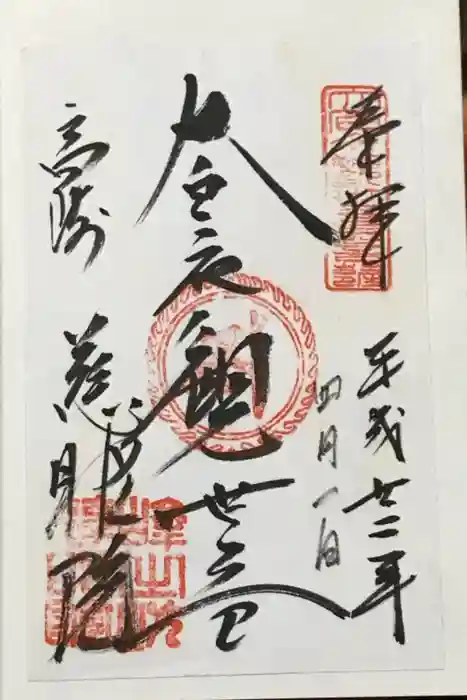 奉拝
平成廿二年
四月一日
大白衣観世音
高崎
慈眼院